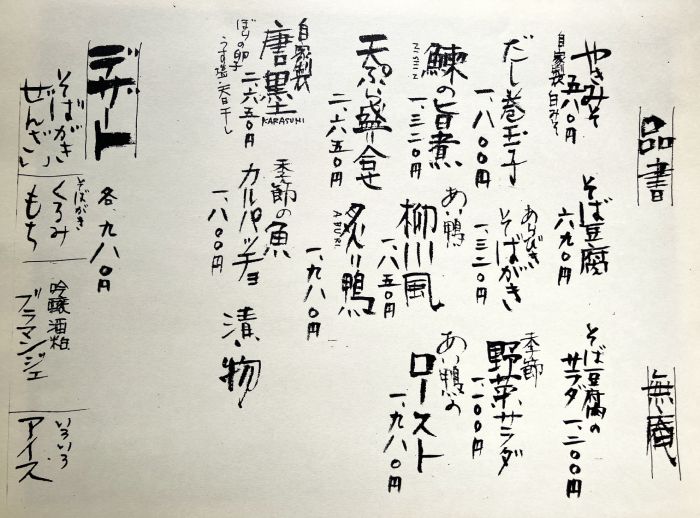 品書
無庵
やきみそ
自家製 白みそ
五八〇円
そば豆腐
六九〇円
そば豆腐の
サラダ
一、二〇〇円
だし巻玉子
一、八〇〇円
あらびき
そばがき
一、三二〇円
季節
野菜サラダ
一、一〇〇円
鰊の旨煮
ニシン
一、三二〇円
あい鴨
柳川風
一、八五〇円
あい鴨の
ロースト
一、九八〇円
天ぷら盛り合せ
二、六五〇円
炙り鴨
ABURI
一、九八〇円
自家製
唐墨
KARASUMI
ぼらの卵子
うす塩・天日干し
二、六五〇円
季節の魚
カルパッチョ
一、八〇〇円
漬物
デザート
各、九八〇円
そばがき
ぜんざい
そばがき
くるみ
もち
吟醸酒粕
ブラマンジェ
いろいろ
アイス